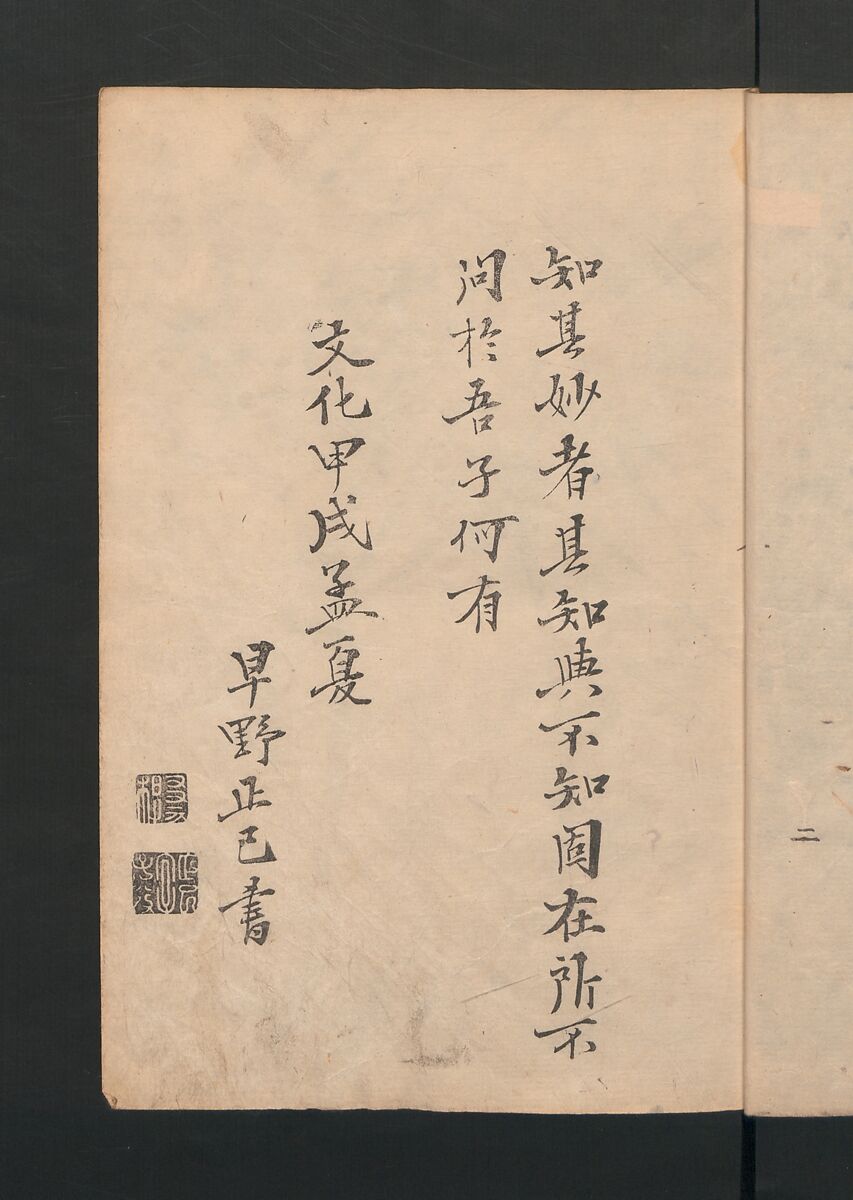 二
知其妙者其知與不知固在所不
問於吾子何有
文化甲戌孟夏
早野正己書